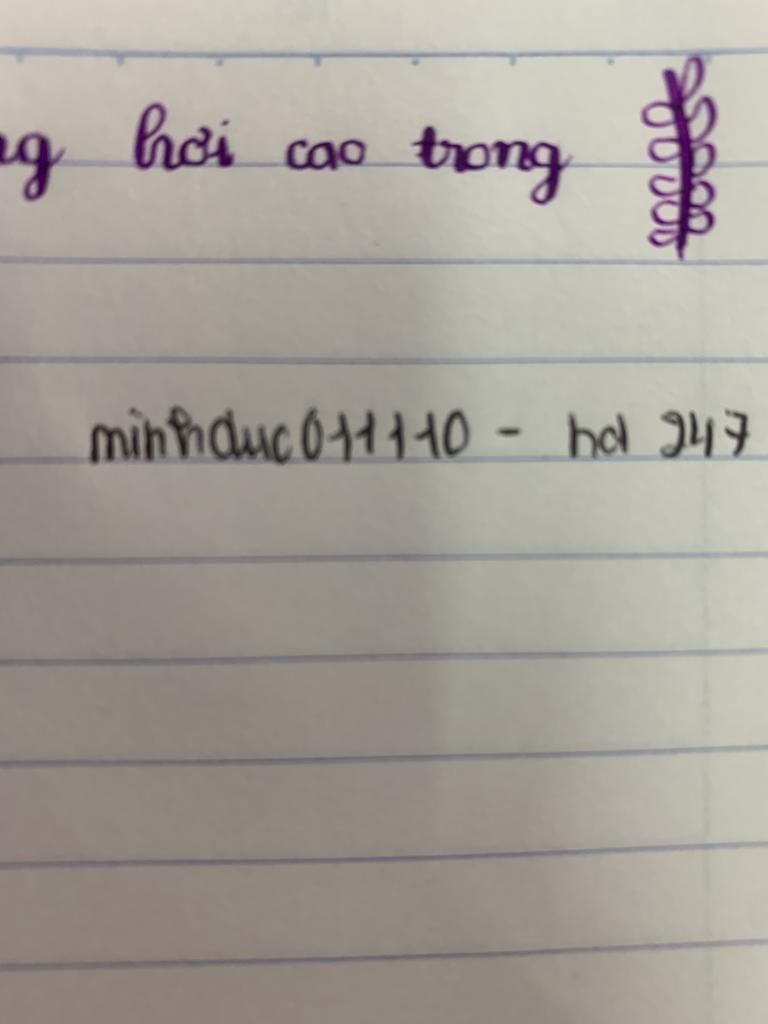 ng hơi cao trong
minhduc011110 - hd 247